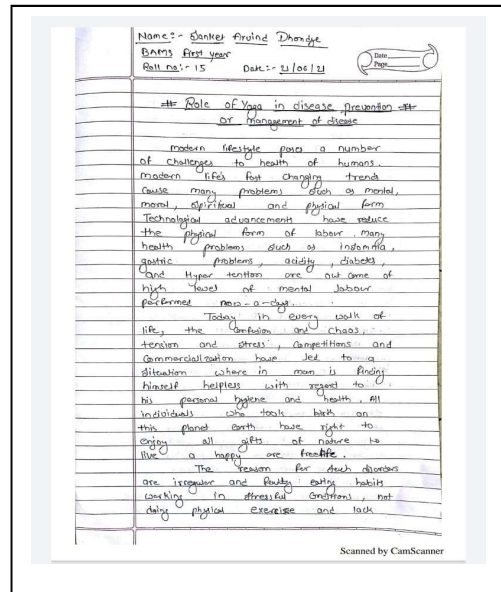 Name:- Sanket Arvind Dhondge
BAMS First year
Roll no:- 15 Date:- 21/06/21
Date
Page
# Role of Yoga in disease prevention #
or management of disease
modern lifestyle poses a number
of challenges to health of humans.
modern life's fast changing trends
cause many problems such as mental,
moral, spiritual and physical form
Technological advancements have reduce
the physical form of labour. many
health problems such as insomnia,
gastric problems, acidity, diabetes,
and Hyper tention are out come of
high level of mental labour
performed now-a-days.
Today in every walk of
life, the confusion and chaos,
tension and stress, competitions and
commercialization have led to a
situation where in man is finding
himself helpless with regard to
his personal hygiene and health. All
individuals who took birth on
this planet earth have right to
enjoy all gifts of nature to
live a happy are free life.
The reason for such disorders
are irregular and faulty eating habits
working in stressful conditions, not
doing physical exercise and lack
Scanned by CamScanner